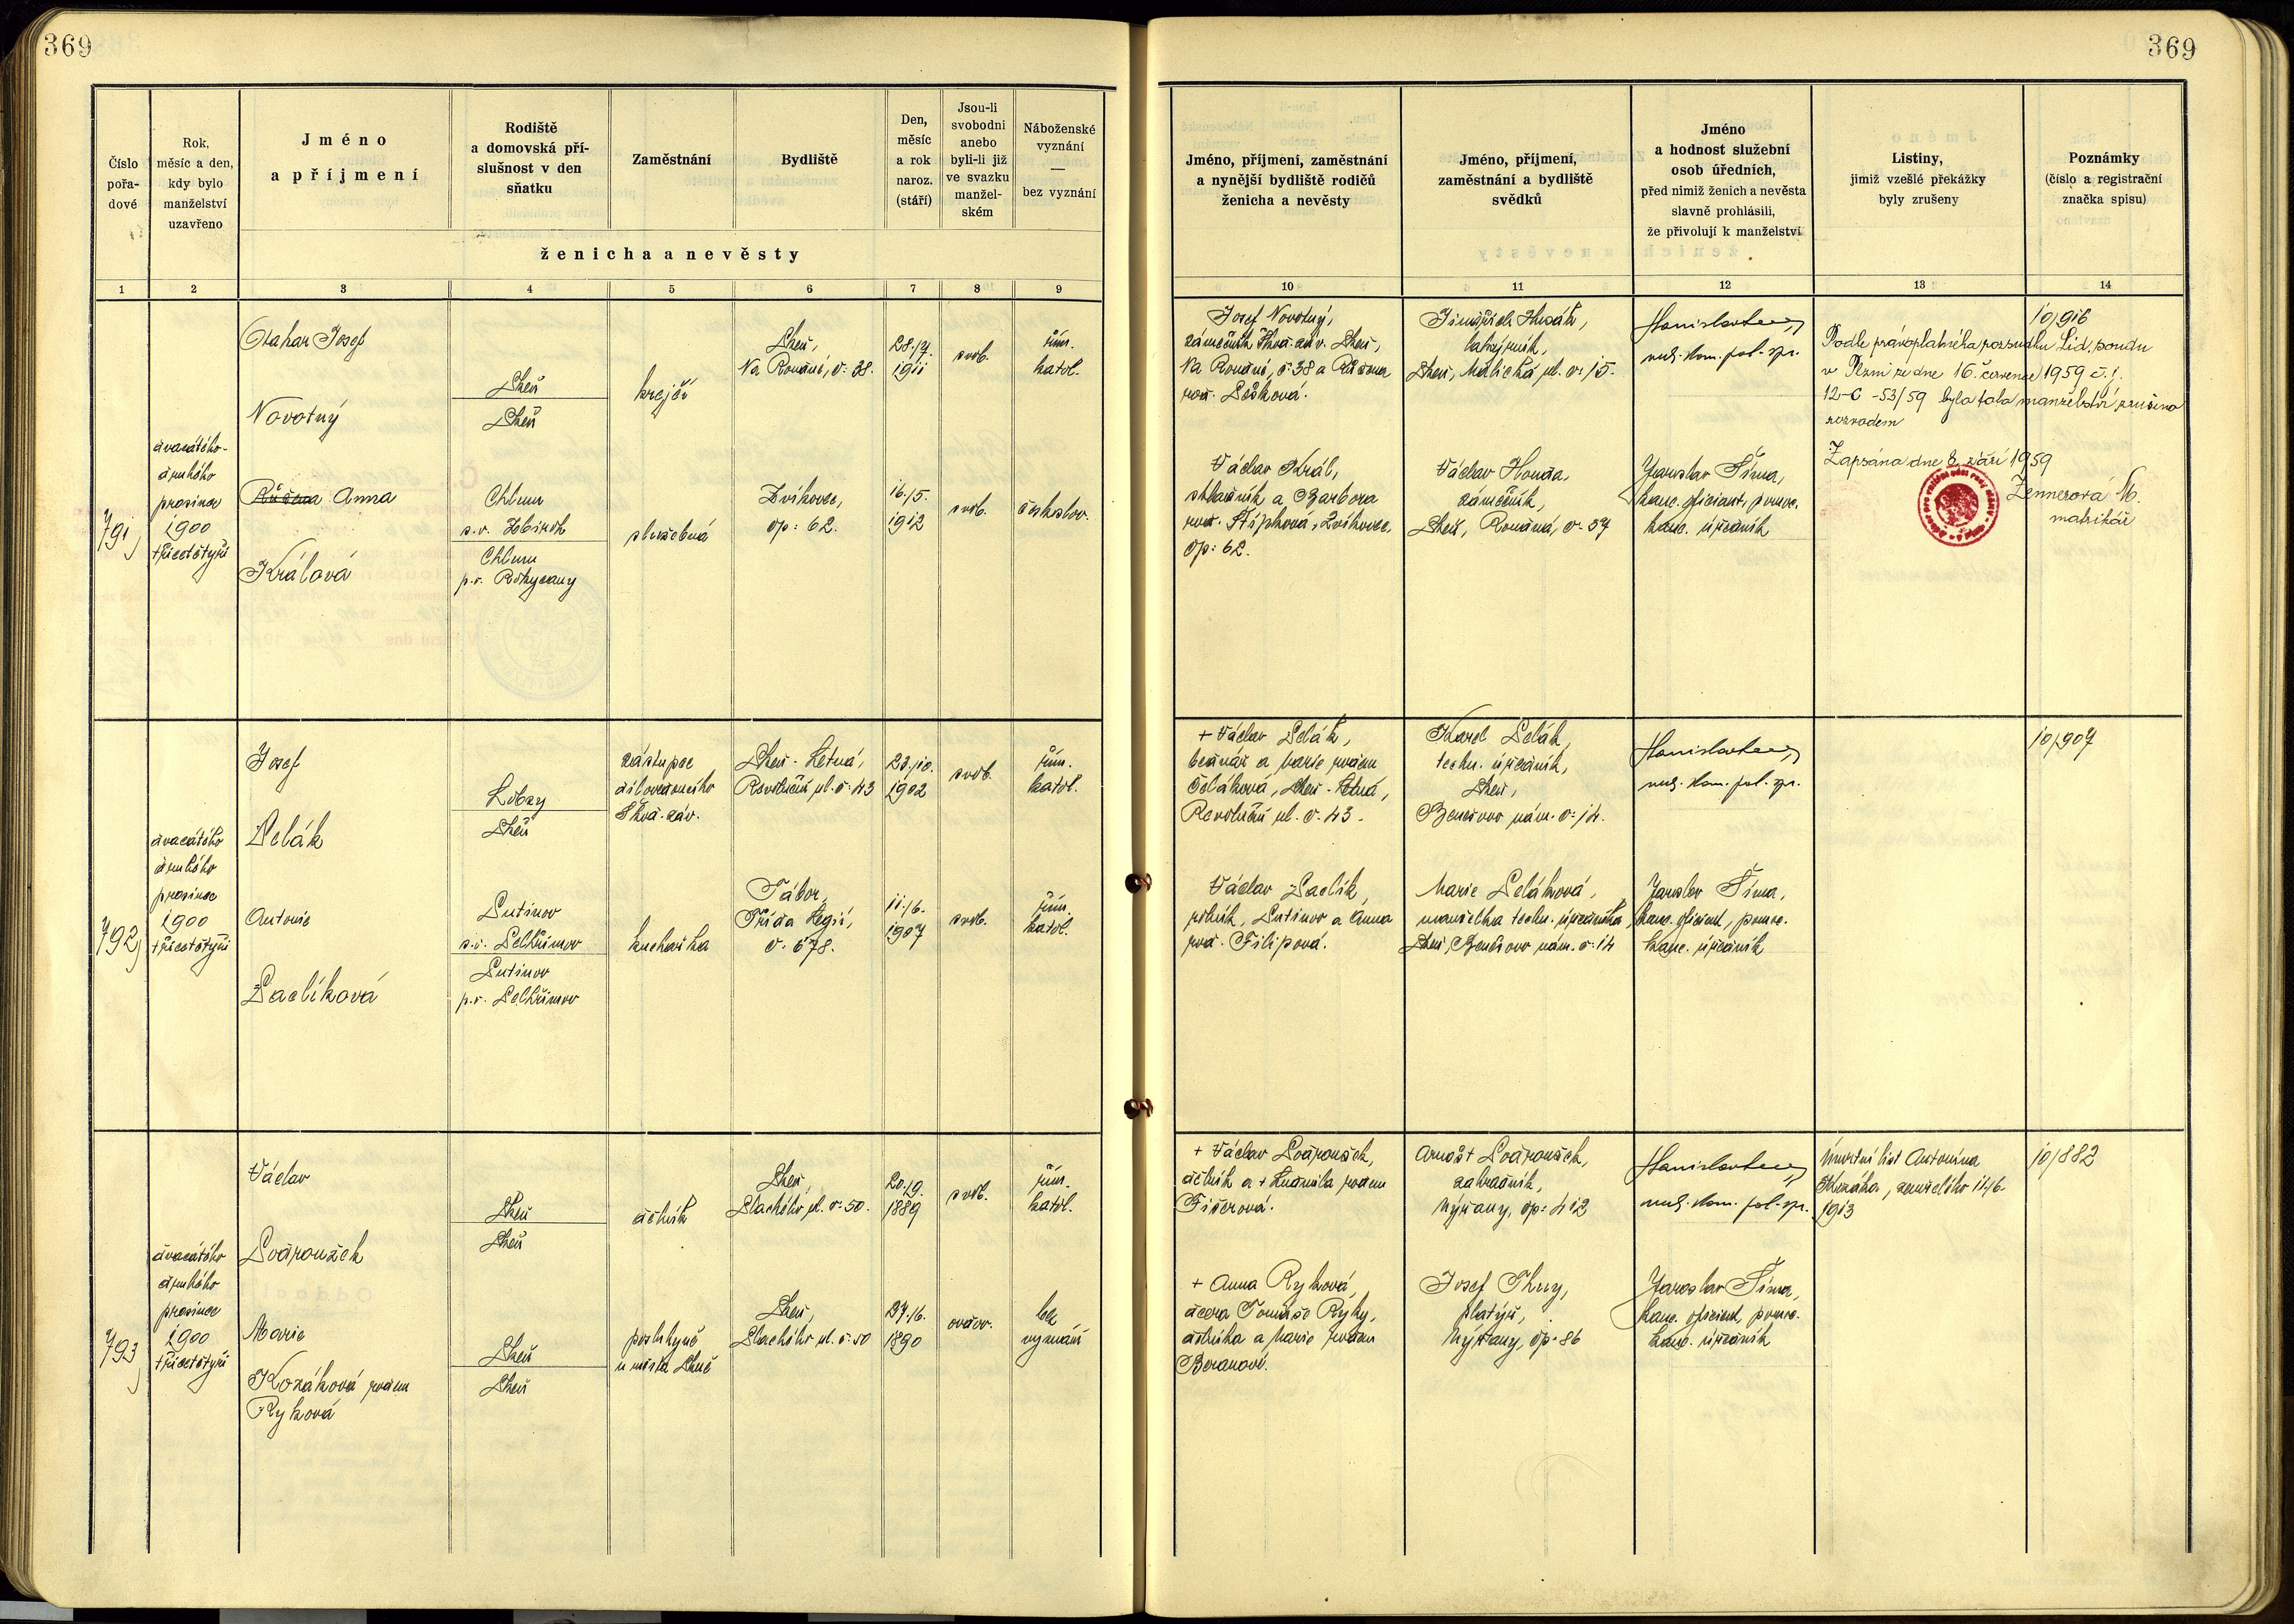 369
369
Číslo
pořa-
dové
Rok,
měsíc a den,
kdy bylo
manželství
uzavřeno
Jméno
a příjmení
Rodiště
a domovská pří-
slušnost v den
sňatku
Zaměstnání
Bydliště
Den,
měsíc
a rok
naroz.
(stáří)
Jsou-li
svobodni
anebo
byli-li již
ve svazku
manžel-
ském
Náboženské
vyznání
—
bez vyznání
ženicha a nevěsty
Jméno, příjmení, zaměstnání
a nynější bydliště rodičů
ženicha a nevěsty
Jméno, příjmení,
zaměstnání a bydliště
svědků
Jméno
a hodnost služební
osob úředních,
před nimiž ženich a nevěsta
slavně prohlásili,
že přivolují k manželství
Listiny,
jimiž vzešlé překážky
byly zrušeny
Poznámky
(číslo a registrační
značka spisu)
1 2 3 4 5 6 7 8 9 10 11 12 13 14
791)
dvacátého-
druhého
prosince
1900
třicetčtyři
Otakar Josef
Novotný
Plzeň
Plzeň
krejčí
Plzeň,
Na Roudné, č. 38.
28./4.
1911
svob.
řím.
katol.
Růžena Anna
Králová
Chlum
s.o. Zbiroh
Chlum
p.o. Rokycany
služebná
Zvíkovec,
čp: 62.
16./5.
1912
svob.
českoslov.
Josef Novotný,
zámečník Škod. záv. Plzeň,
Na Roudné, č. 38 a Růžena
roz. Pešková.
Václav Král,
a Barbora
roz. Zvíkovec,
čp: 62.
Jindřich
Plzeň, Malická ul. č. 15.
Václav Houda,
zámečník,
Plzeň, Roudná, č. 57
rad. kom. pol. spr.
Jaroslav Šíma,
kanc. oficiant, pomoc.
kanc. úředník
10/916
Podle právoplatného rozsudku Lid. soudu
v Plzni ze dne 16. července 1959 č.j.
12-C-53/59 bylo toto manželství zrušeno
rozvodem
Zapsáno dne 8. září 1959
Zennerová M.
matrikář
792)
dvacátého
druhého
prosince
1900
třicetčtyři
Josef
Pelák
Plzeň
zástupce
dílovedoucího
Škod. záv.
Plzeň - Letná,
Revoluční ul. č. 43
23./10.
1902
svob.
řím.
katol.
Antonie
Paclíková
Putimov
s.o. Pelhřimov
Putimov
p.o. Pelhřimov
kuchařka
Tábor,
Třída Legií,
č. 678.
11./6.
1907
svob.
řím.
katol.
+ Václav Pelák,
bednář a Marie rodem
Plzeň - Letná,
Revoluční ul. č. 43.
Václav Paclík,
rolník, Putimov a Anna
roz. Filipová.
Karel Pelák,
techn. úředník,
Plzeň,
Benešovo nám. č. 14.
Marie Peláková,
manželka techn. úředníka,
Plzeň, Benešovo nám. č. 14
rad. kom. pol. spr.
Jaroslav Šíma,
kanc. oficiant, pomoc.
kanc. úředník
10/907
793)
dvacátého
druhého
prosince
1900
třicetčtyři
Václav
Plzeň
Plzeň
dělník
Plzeň,
Plachého ul. č. 50.
20./9.
1889
svob.
řím.
katol.
Marie
Kozáková rodem
Ryková
Plzeň
Plzeň
poslukyně
u města Plzně
Plzeň,
Plachého ul. č. 50
27./6.
1890
ovdov.
bez
vyznání
+ Václav
dělník a + Ludmila rodem
Fišerová.
+ Anna Ryková,
dcera Tomáše Ryky,
dělníka a Marie rodem
Beranové.
Arnošt
zahradník,
Nýřany, čp: 412
Josef
Nýřany, čp: 86
rad. kom. pol. spr.
Jaroslav Šíma,
kanc. oficiant, pomoc.
kanc. úředník
Úmrtní list Antonína
Kozáka, zemřelého 14/6.
1913
10/882